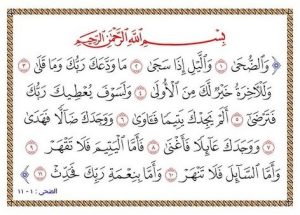 بِسْمِ اللَّهِ الرَّحْمَٰنِ الرَّحِيمِ
وَالضُّحَىٰ ۝١ وَاللَّيْلِ إِذَا سَجَىٰ ۝٢ مَا وَدَّعَكَ رَبُّكَ وَمَا قَلَىٰ ۝٣
وَلَلْآخِرَةُ خَيْرٌ لَّكَ مِنَ الْأُولَىٰ ۝٤ وَلَسَوْفَ يُعْطِيكَ رَبُّكَ
فَتَرْضَىٰ ۝٥ أَلَمْ يَجِدْكَ يَتِيمًا فَآوَىٰ ۝٦ وَوَجَدَكَ ضَالًّا فَهَدَىٰ
۝٧ وَوَجَدَكَ عَائِلًا فَأَغْنَىٰ ۝٨ فَأَمَّا الْيَتِيمَ فَلَا تَقْهَرْ
۝٩ وَأَمَّا السَّائِلَ فَلَا تَنْهَرْ ۝١٠ وَأَمَّا بِنِعْمَةِ رَبِّكَ فَحَدِّثْ ۝١١
الضحى : ١ - ١١